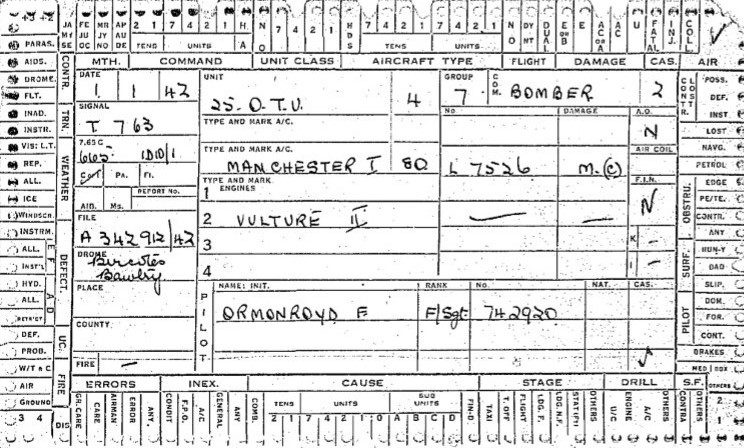 JA FE MR AP 2 1 7 4 2 1 H N 7 4 2 1 HDS 7 4 2 1 7 4 2 1 N DY DUAL E AC AC U FATAL INJ. COLL.
MY JU JY AU TENS UNITS A O TENS UNITS A O NT OR B OR A
SE OC NO DE
MTH. COMMAND UNIT CLASS AIRCRAFT TYPE FLIGHT DAMAGE CAS. AIR
PARAS.
AIDS.
DROME.
FLT.
INAD.
INSTR.
VIS: L.T.
REP.
ALL.
ICE
WINDSCH.
INSTRM.
ALL.
INST'L
HYD.
ALL.
DEF.
PROB.
W/T & C
AIR
GROUND
3 4
CONTR.
TRN.
WEATHER
DEFECT.
UC.
FIRE
DIS
DATE
1 1 42
UNIT
25. O.T.U. 4
GROUP
7
COM.
BOMBER 2
SIGNAL
T 763
TYPE AND MARK A/C.
No DAMAGE A.O.
N
7.65 C
665
TYPE AND MARK A/C.
MANCHESTER I 8Q L 7526 M.(C)
AIR COLL
Cat PA. FI.
REPORT No.
AIB. Ms.
TYPE AND MARK
1 ENGINES
F.I.N.
N
FILE
A 342912/42
2 VULTURE II
DROME
Bircotes
Bawtry
3
K -
4
I -
PLACE
COUNTY
FIRE —
PILOT
NAME: INIT. RANK No. NAT. CAS.
ORMONROYD F F/Sgt 742920
CONSTR.
POSS.
DEF.
INST
LOST
NAVG.
PETROL
OBSTRU.
EDGE
PE/TE.
CONTR.
ANY
SURF.
RUN-Y
BAD
SLIP.
PILOT
DOM.
FOR.
CONT.
BRAKES
MED BOX
OTHERS
ERRORS INEX. CAUSE STAGE DRILL S.F.
GR. CARE CARE AIRMAN ERROR ANY. CONDIT F.P.O. A/C GENERAL ANY COMB. TENS UNITS SUB UNITS FIN-D TAXI T. OFF FLIGHT LDG. F. LDG. N.F. STAT'RY OTHERS U/C ENGINE A/C OTHERS CONTRA OTHERS 2 1
2 1 7 4 2 1 0 A B C D